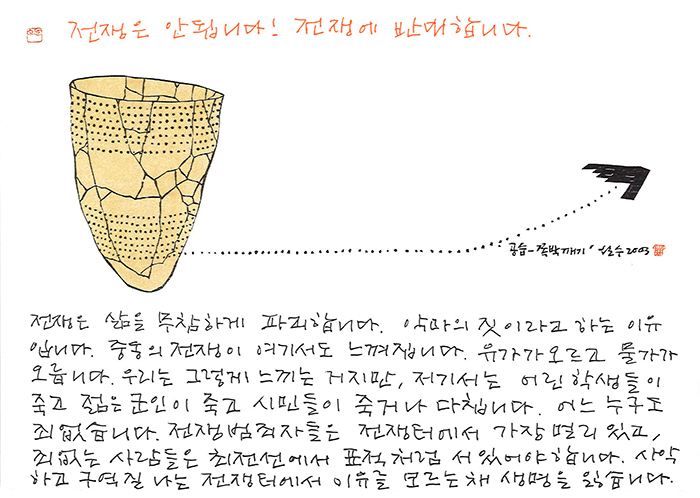 전쟁은 안됩니다! 전쟁에 반대합니다.
공습-쪽박깨기' 철수 2003
전쟁은 삶을 무참하게 파괴합니다. 악마의 짓이라고 하는 이유
입니다. 중동의 전쟁이 여기서도 느껴집니다. 유가가 오르고 물가가
오릅니다. 우리는 그렇게 느끼는 거지만, 저기서는 어린 학생들이
죽고 젊은 군인이 죽고 시민들이 죽거나 다칩니다. 어느 누구도
죄없습니다. 전쟁범죄자들은 전쟁터에서 가장 멀리 있고,
죄없는 사람들은 최전선에서 표적처럼 서 있어야 합니다. 사악
하고 구역질 나는 전쟁터에서 이유를 모르는 채 생명을 잃습니다.